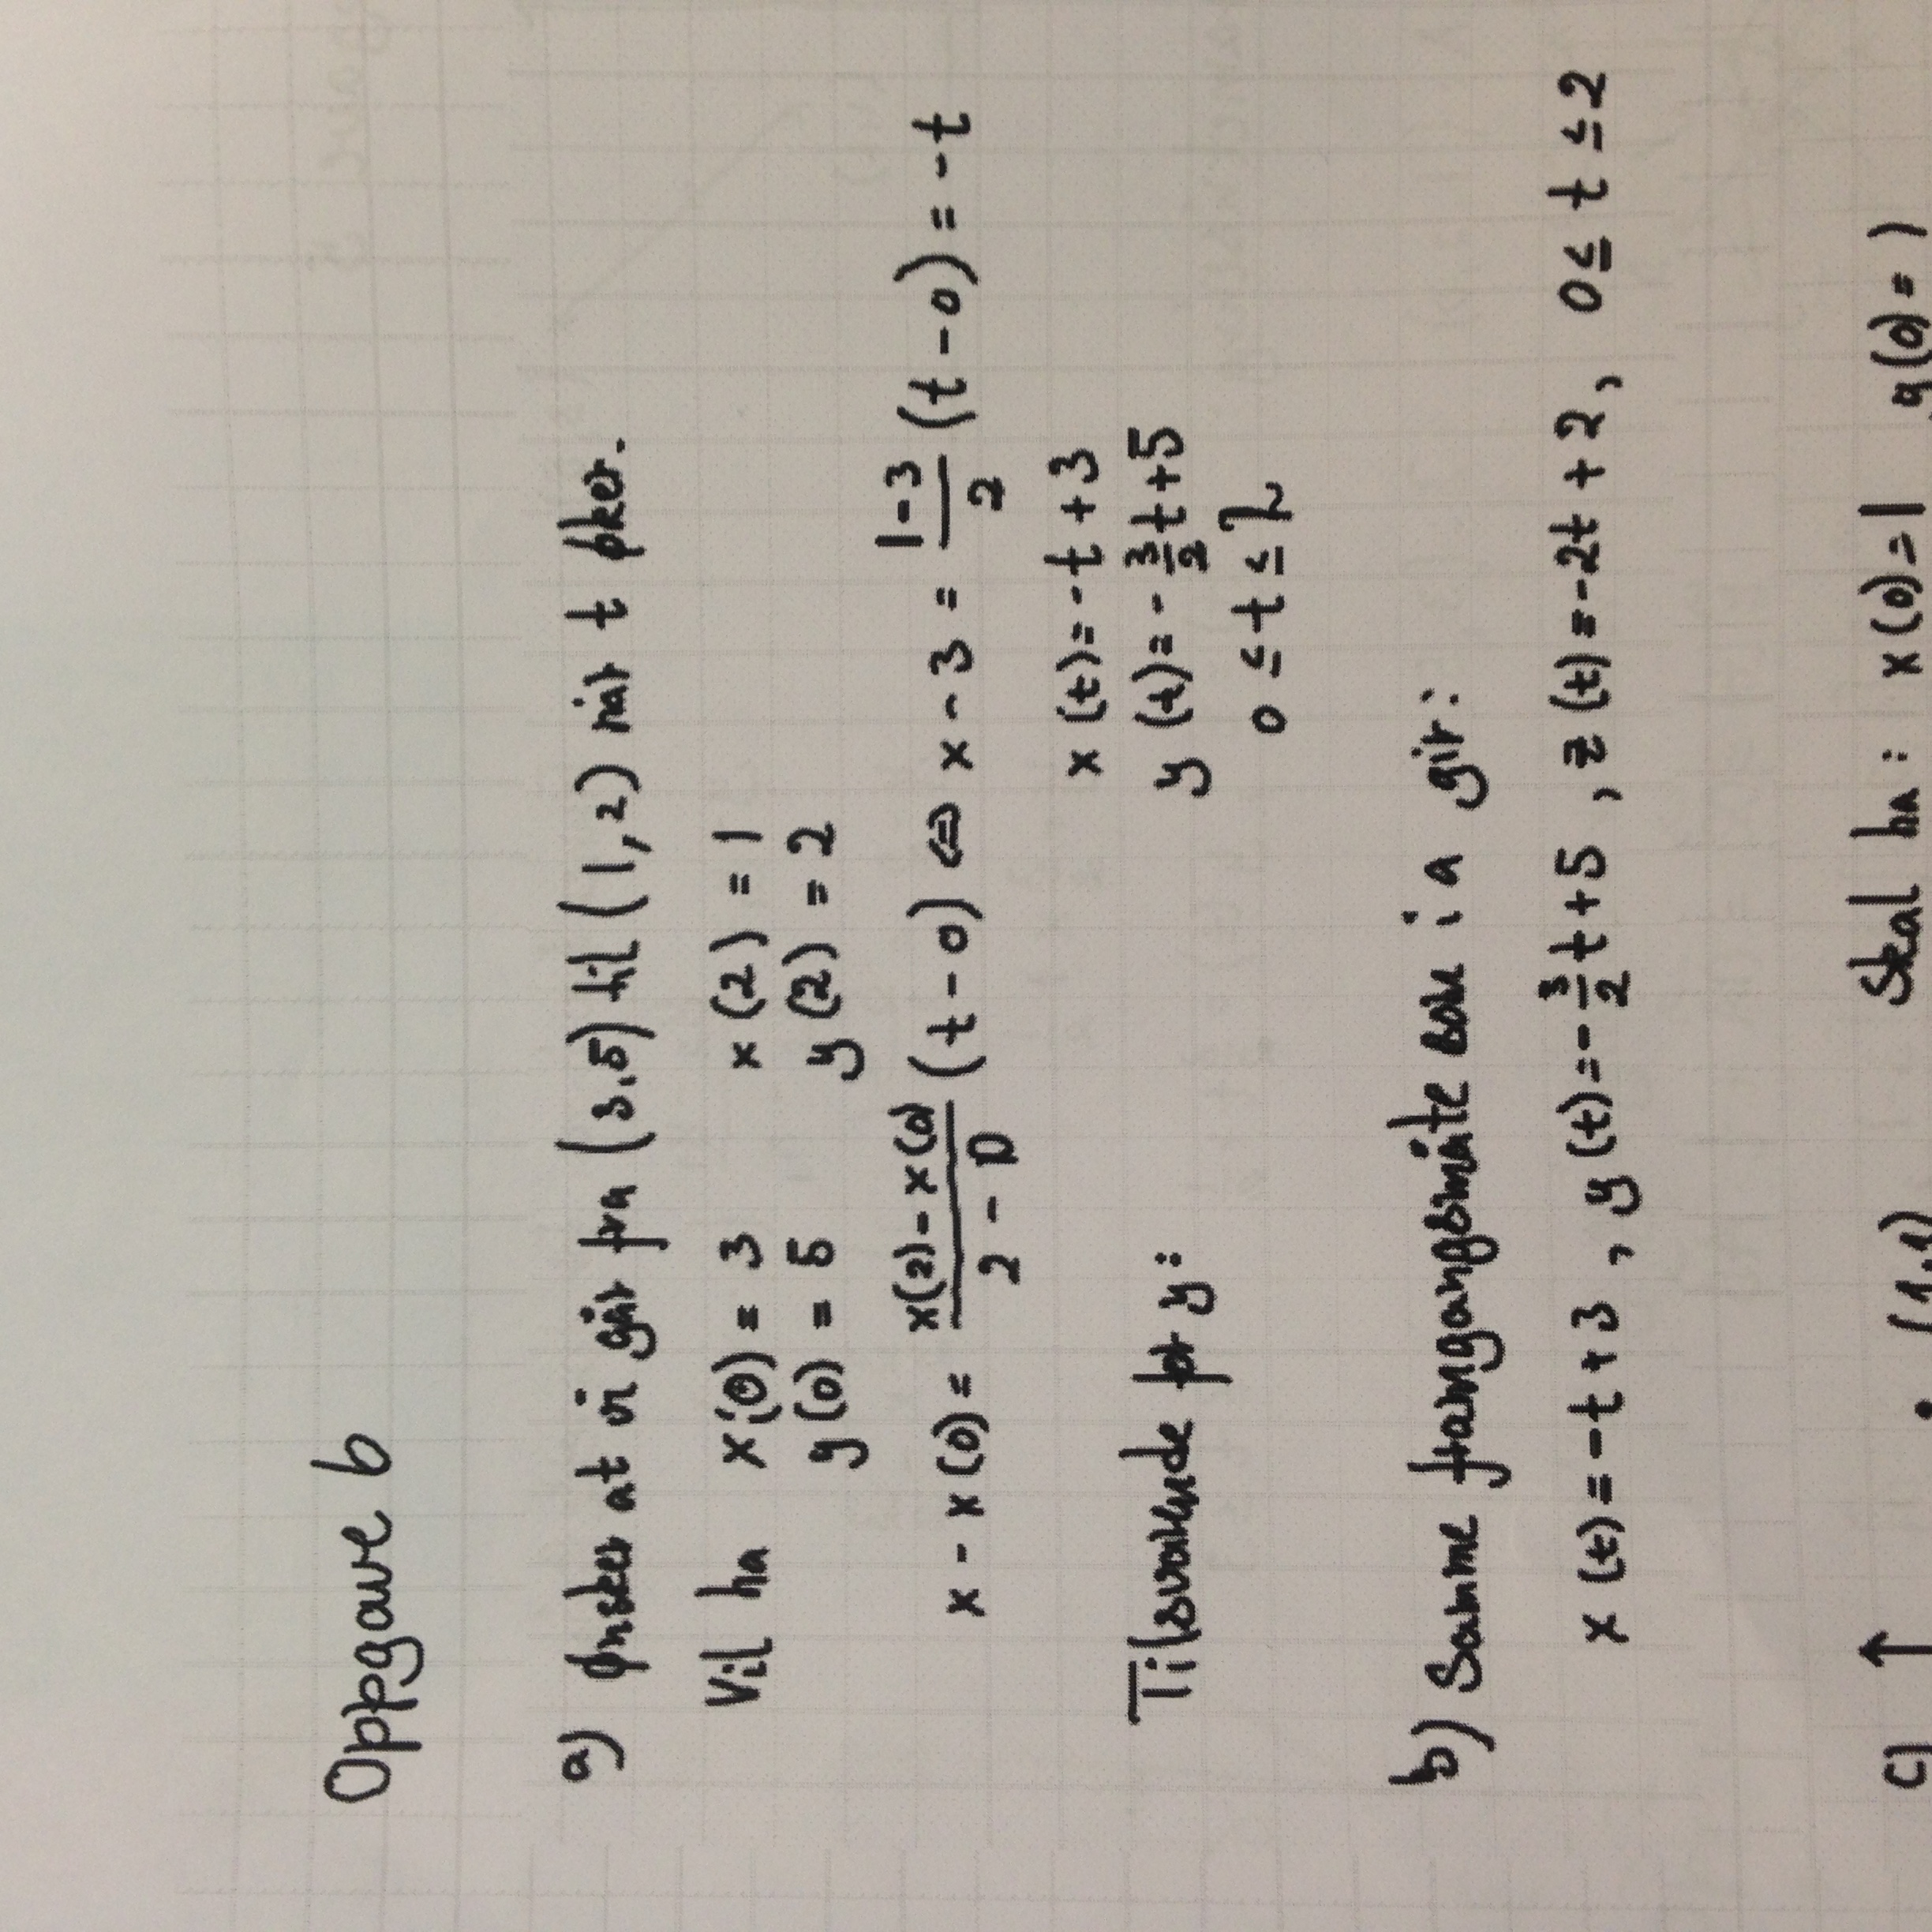 Oppgave 6
a) Ønsker at vi går fra (3,5) til (1,2) når t øker.
Vil ha x(0) = 3 x(2) = 1
y(0) = 5 y(2) = 2
x - x(0) = \frac{x(2) - x(0)}{2 - 0} (t - 0) ⇔ x - 3 = \frac{1-3}{2} (t - 0) = -t
x(t) = -t + 3
Tilsvarende for y: y(t) = - \frac{3}{2}t + 5
0 ≤ t ≤ 2
b) Samme framgangsmåte som i a gir:
x(t) = -t + 3, y(t) = - \frac{3}{2}t + 5, z(t) = -2t + 2, 0 ≤ t ≤ 2
c) ↑ • (1,1) Skal ha: x(0) = 1 y(0) = 1